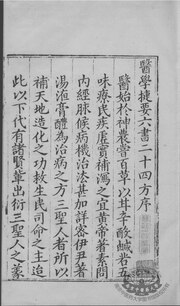 醫學捷要六書二十四方序
醫始於神農嘗百草以甘辛酸鹹苦五
味療民疾虐實補瀉之宜黃帝著素問
內經脉候病機治法甚加詳密伊尹著
湯液膏醴為治病之方三聖人者所以
補天地造化之功救生民司命之主迨
此以下代有諸賢輩出衍三聖人之蒙